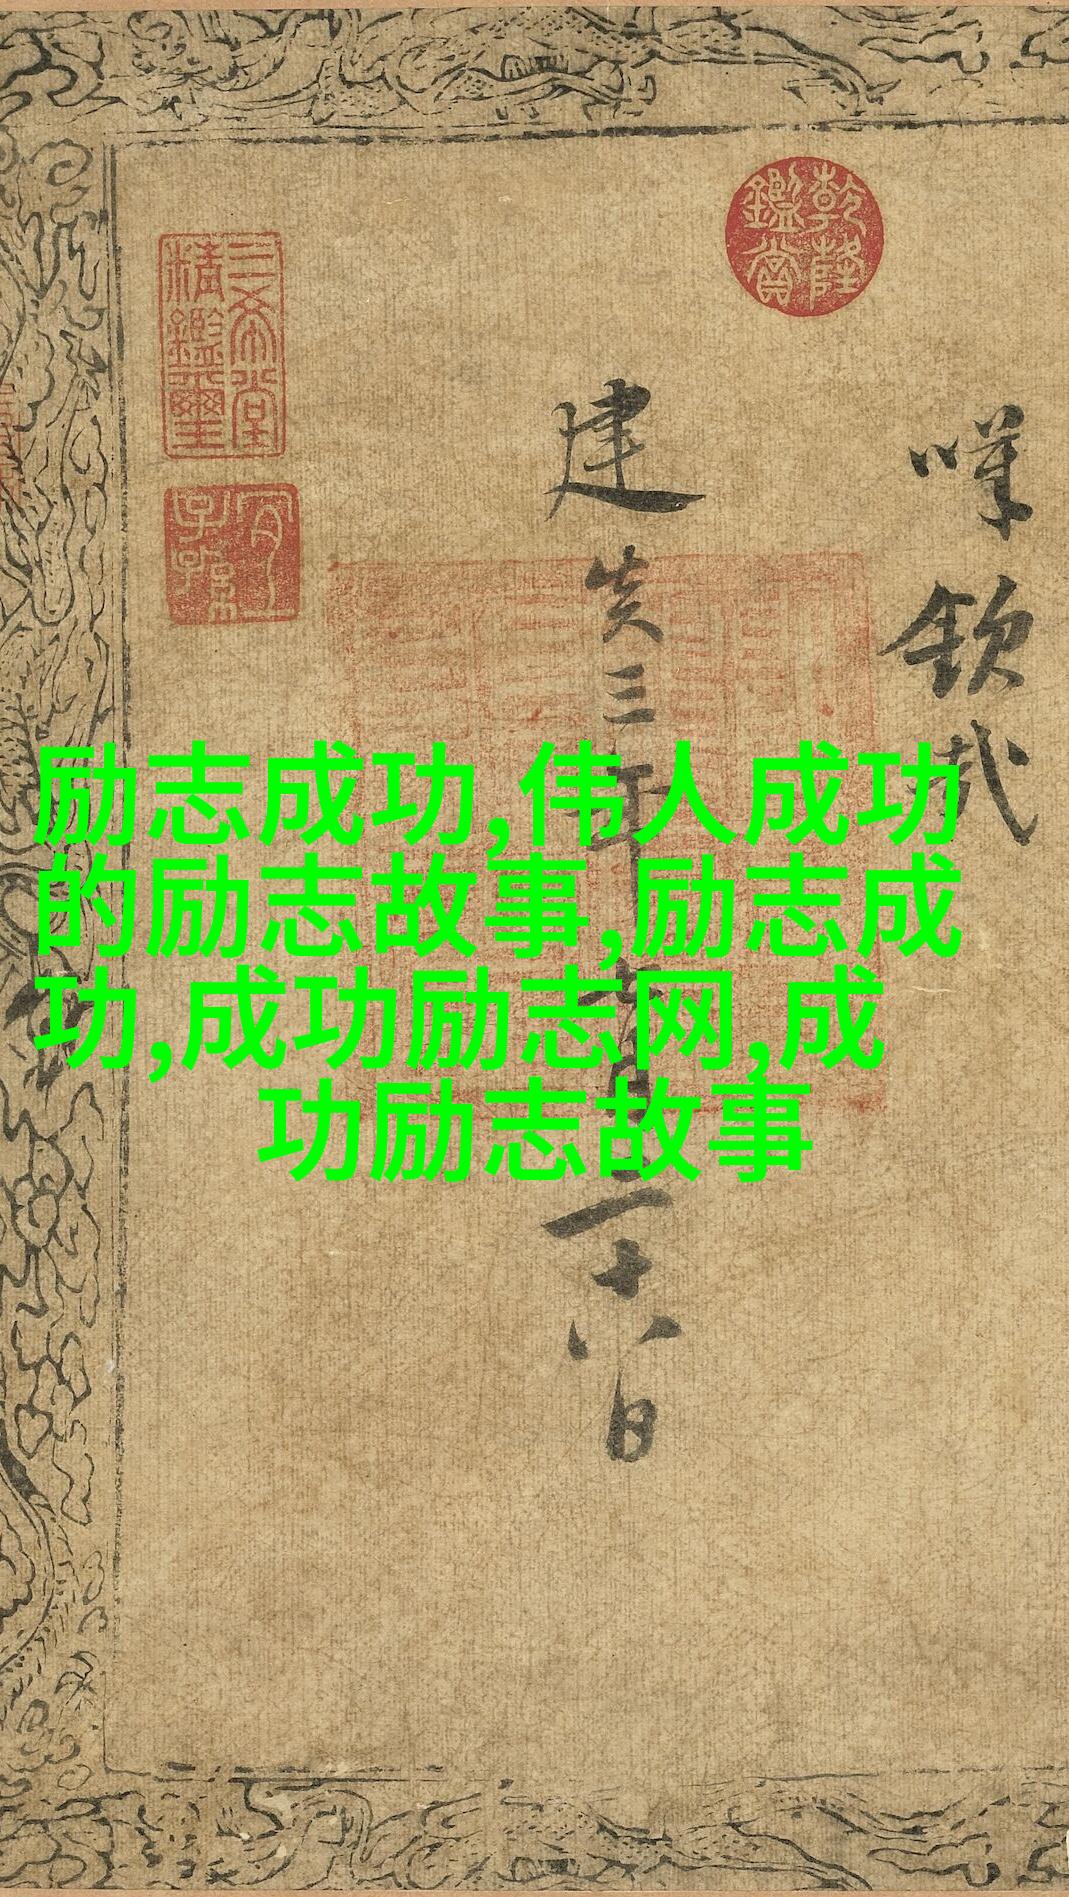 励志成功,伟人成功
的励志故事,励志成
功,成功励志网,成
功励志故事
钦哉
建炎三年七月二十八日
乾隆鑑賞
三希堂精鑑璽
宜子孫